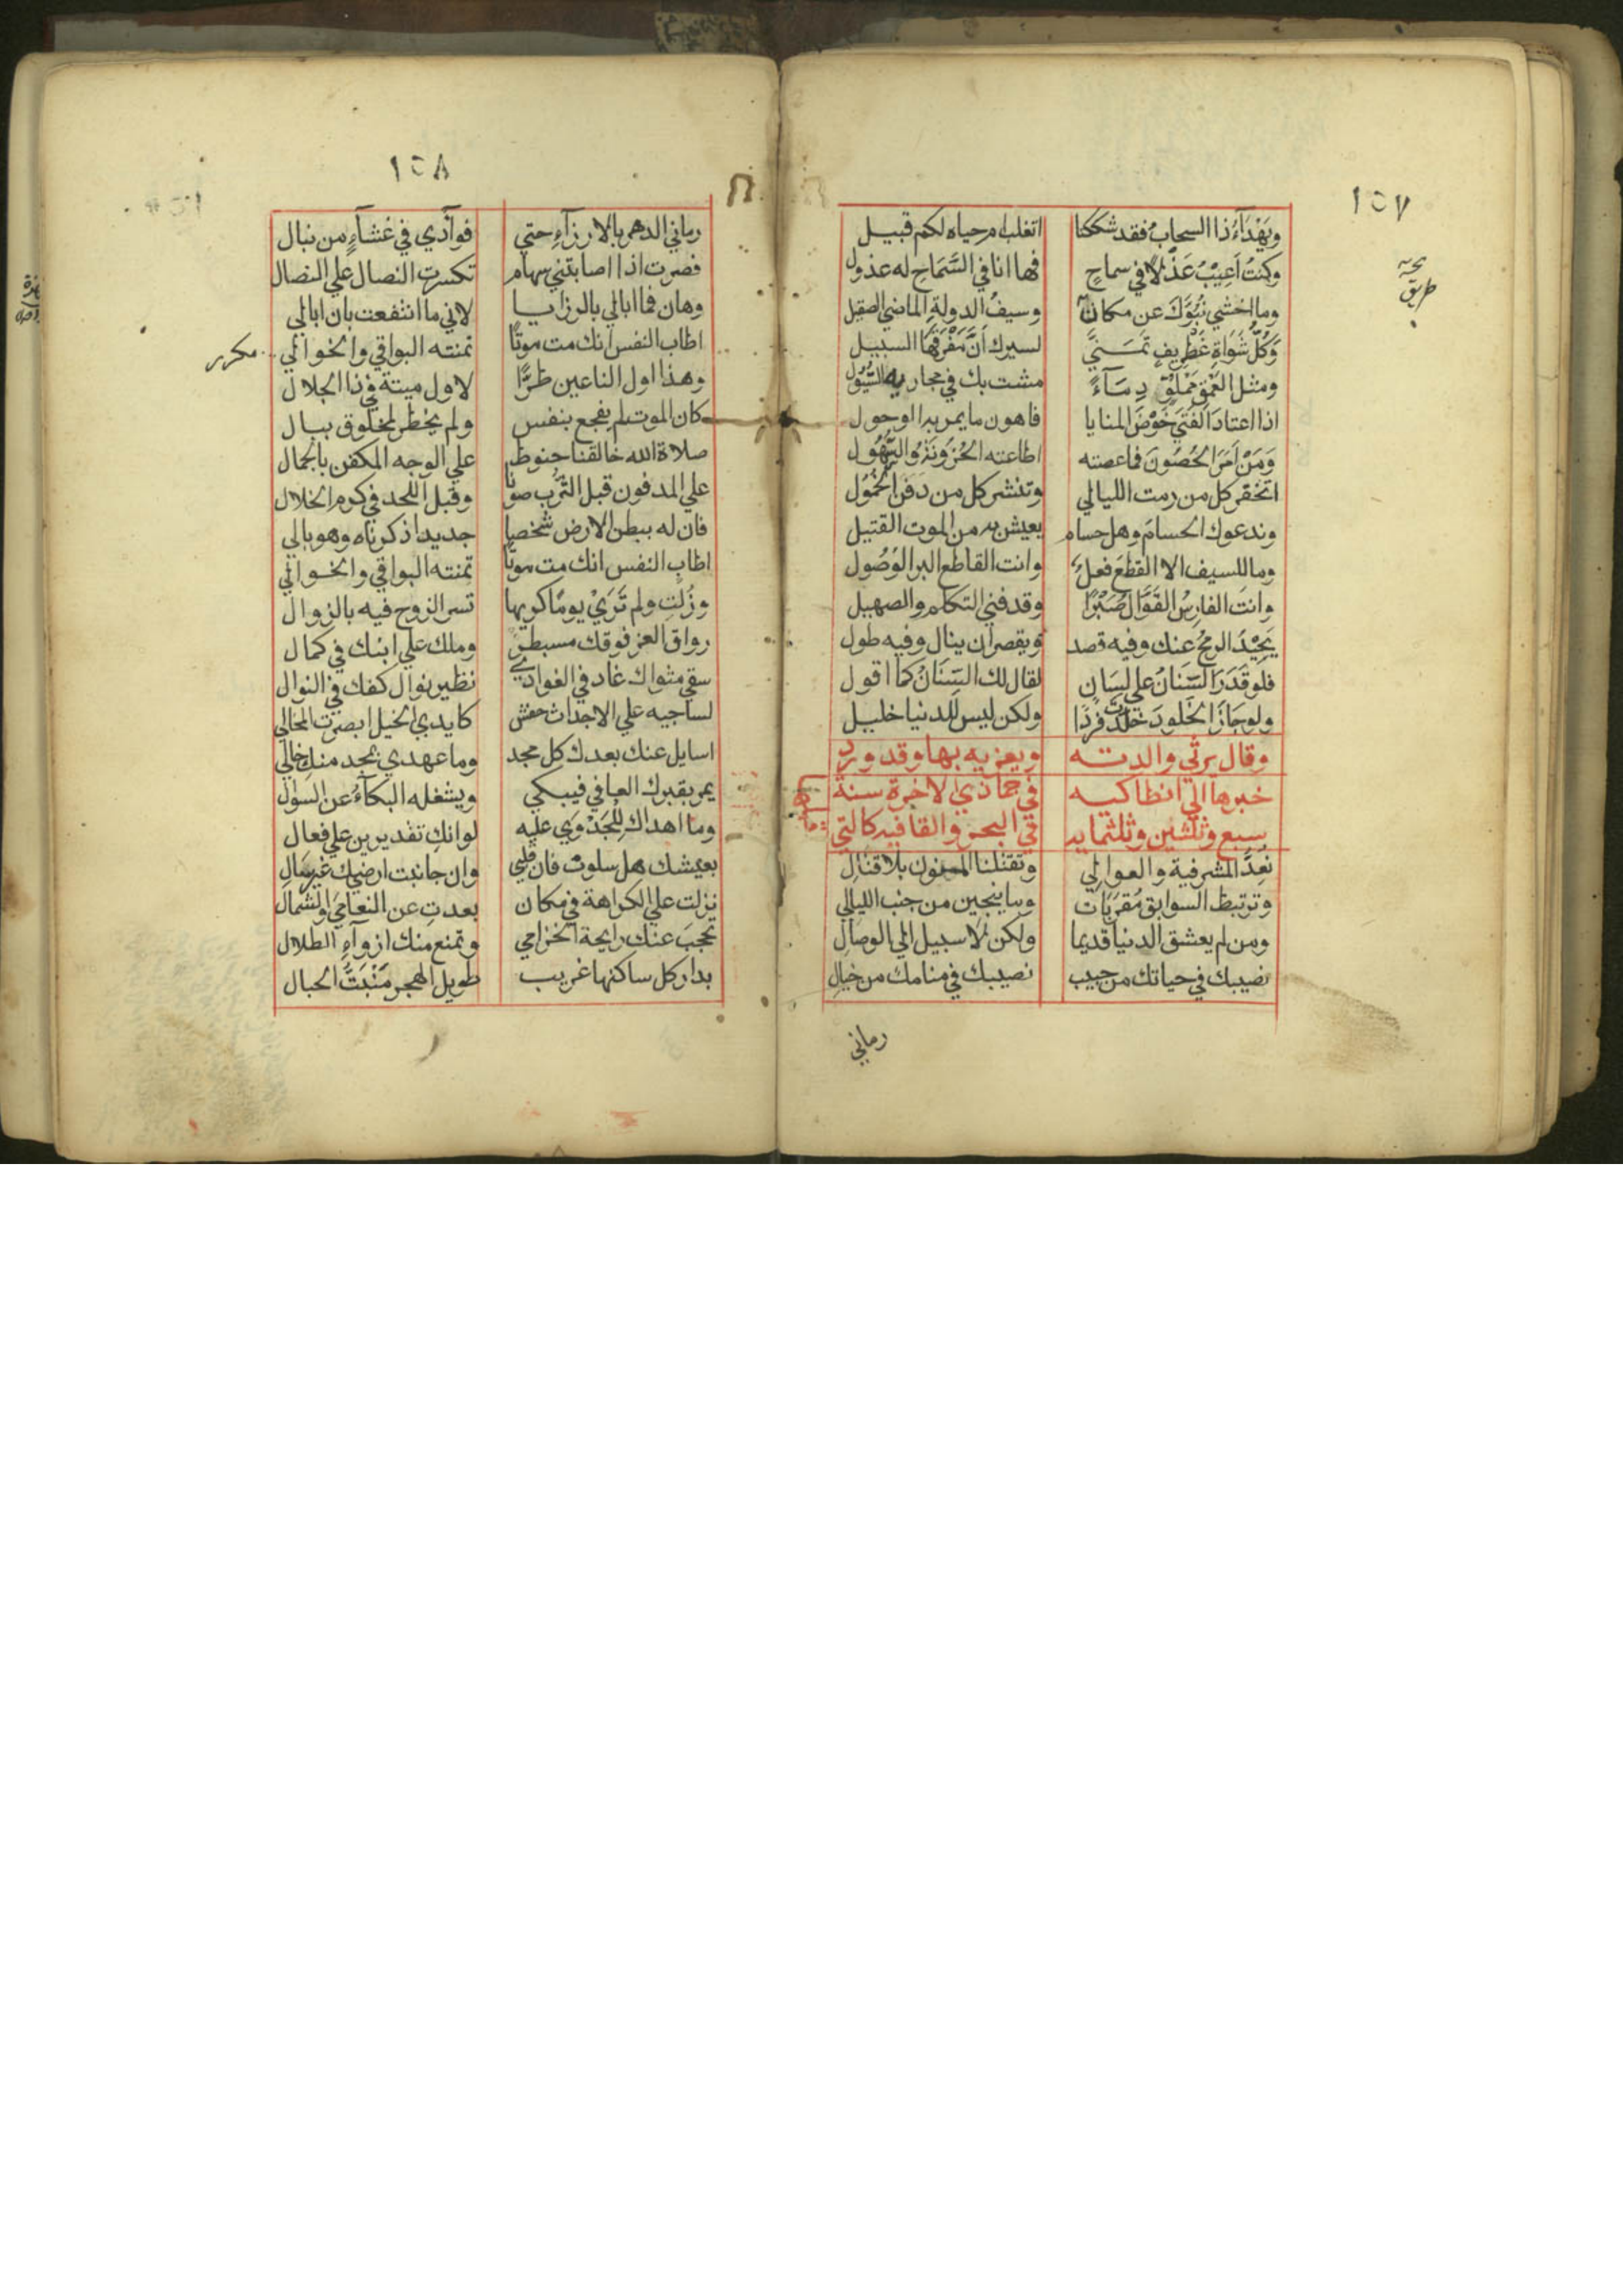 ١٥٧
ويهدآء ذا السحاب فقد شككنا اتغلب ام حياه لكم قبيل
وكنتُ اَعيبُ عَذْلًا في سماحٍ فها انا في السَّمَاحِ له عذول
وما اخشي نُبُوَّكَ عن مكان وسيفُ الدولةِ الماضي الصقيل
وَكُلُّ شَوَاةِ غَطْرِيفٍ تَمَنَّي لسيرك اَنَّ مَفْرَقَهَا السبيل
ومثل العَمْقِ مَمْلُوٍّ دِمَآءً مشت بك في مجاريه السيُول
اذا اعتادَ الفَتَي خَوْضَ المنايا فاهون ما يمر به الوحول
وَمَنْ اَمَرَ الحُصُونَ فما عصته اطاعته الحُزونَةُ والسُّهُول
اتخفر كل من رمت الليالي وتنشر كل من دَفَنَ الخُمُول
وندعوك الحسامَ وهل حسام يعيش به من الموت القتيل
وما للسيف الا القطعَ فعلٌ وانت القاطع البر الوَصُول
وانتَ الفارسُ القَوَّال صَبْرًا وقد فني التكلم والصهيل
يَحِيْدُ الرمحُ عنك وفيه قصد ويقصر ان ينال وفيه طول
فلو قَدَرَ السِّنَانُ علي لسَان لقال لك السِّنَانُ كما اقول
ولو جَازَ الخلودَ خلدتَ فردًا ولكن ليس للدنيا خليل
وقال يرثي والدته ويعزيه بها وقد ورد
خبرها الي انطاكيه في جمادي الاخرة سنة
سبع وثلثين وثلثمايه في البحر والقافيه كالتي
نُعِدُّ المشرفية والعوالي وتقتلنا المنون بلا قتال
وترتبط السوابق مُقَرَبَات وما ينجين من خبب الليالي
ومن لم يعشق الدنيا قديما ولكن لا سبيل الي الوصال
نصيبك في حياتك من حبيب نصيبك في منامك من خيال
رماني
١٥٨
رماني الدهر بالارزآءِ حتي فوآدي في غشآءٍ من نبال
فصرت اذا اصابتني سهام تكسرت النصال علي النصال
وهان فما ابالي بالرزايا لاني ما انتفعت بان ابالي
اطاب النفس انك مت موتًا تمنته البواقي والخوالي
مكرر
وهذا اول الناعين طرًّا لاول ميتة في ذا الجلال
كان الموت لم يفجع بنفس ولم يخطر لمخلوق ببال
صلاة الله خالقنا حنوط علي الوجه المكفن بالجمال
علي المدفون قبل التُّرب صونًا وقبل اللحد في كرم الخلال
فان له ببطن الارض شخصا جديدا ذكرناه وهو بالي
اطاب النفس انك مت موتًا تمنته البواقي والخوالي
وزُلتِ ولم تَرَيْ يومًا كريها تسر الزوج فيه بالزوال
رواق العز فوقك مسبطر وملك علي ابنك في كمال
سقي مثواك غاد في الغوادي نظير نوال كفك في النوال
لساحيه علي الاجداث حفش كايدي الخيل ابصرت المخالي
اسايل عنك بعدك كل مجد وما عهدي بمجد منكِ خالي
يمر بقبرك العافي فيبكي ويشغله البكآءُ عن السوال
وما اهداكِ لِلْجَدْوَي عليه لو انكِ تقديرين علي فعال
بعيشك هل سلوت فان قلبي وان جانبت ارضيك غير سَال
نزلت علي الكراهة في مكان بعدتِ عن النعامَي والشمال
تحجب عنك رايحة الخزامي وتمنع منك ازوآءِ الطلال
بدار كل ساكنها غريب طويل الهجر مُنْبَتُّ الحبال